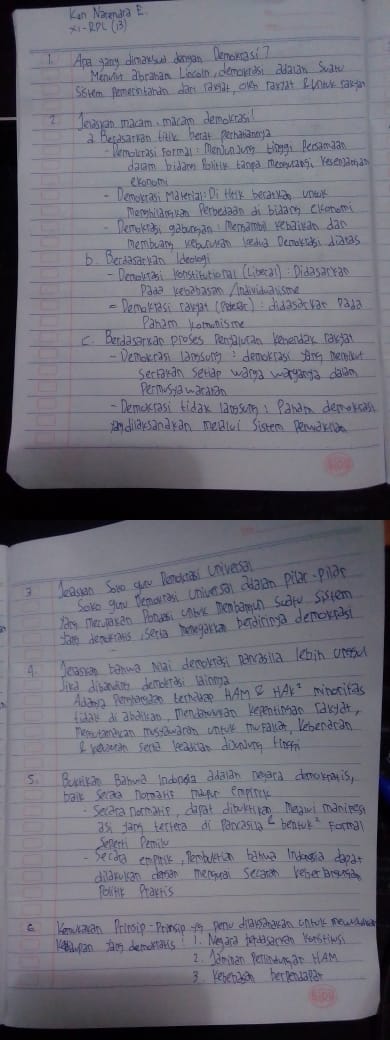 Ken Narendra E.
XI-RPL (13)
1. Apa yang dimaksud dengan Demokrasi?
Menurut abraham Lincoln, demokrasi adalah Suatu
Sistem pemerintahan dari rakyat, oleh rakyat & untuk rakyat
2. Jelaskan macam-macam demokrasi!
a. Berdasarkan titik berat perhatiannya
- Demokrasi Formal: Menjunjung tinggi Persamaan
dalam bidang Politik tanpa mengurangi Kesenjangan
ekonomi
- Demokrasi Material: Di titik beratkan untuk
Menghilangkan Perbedaan di bidang ekonomi
- Demokrasi gabungan: Mengambil kebaikan dan
membuang keburukan kedua Demokrasi diatas
b. Berdasarkan Ideologi
- Demokrasi Konstitutional (Liberal): Didasarkan
Pada kebebasan /Individualisme
- Demokrasi rakyat (Proletar): didasarkan Pada
Paham komunisme
c. Berdasarkan proses Penyaluran kehendak rakyat
- Demokrasi langsung: demokrasi yang mengikut
sertakan setiap warga warganya dalam
Permusyawaratan
- Demokrasi tidak langsung: Paham demokrasi
yang dilaksanakan melalui Sistem Perwakilan
3. Jelaskan Soko guru Demokrasi Universal
Soko guru Demokrasi universal adalah pilar-pilar
Yang merupakan Pondasi untuk membangun Suatu sistem
Yang demokratis, Serta menegakkan berdirinya demokrasi
4. Jelaskan bahwa Nilai demokrasi Pancasila lebih unggul
Jika dibanding demokrasi lainnya
Adanya Penghargaan terhadap HAM & HAK² minoritas
tidak di abaikan, Mendahulukan kepentingan rakyat,
Mengutamakan musyawarah untuk mufakat, kebenaran
& kejujuran serta keadilan dijunjung tinggi
5. Buktikan Bahwa Indonesia adalah negara demokratis,
baik Secara normatif maupun empirik
- Secara normatif, dapat dibuktikan melalui manifest
asi yang tertera di Pancasila & bentuk² Formal
Seperti Pemilu
- Secara empirik, Pembuktian bahwa Indonesia dapat
dilakukan dengan menguji Secara keberlangsungan
Politik Praktis
6. Kemukakan Prinsip-Prinsip yg perlu dilaksanakan untuk mewujudkan
Kehidupan Yang demokratis! 1. Negara berdasarkan konstitusi
2. Jaminan Perlindungan HAM
3. Kebebasan berpendapat